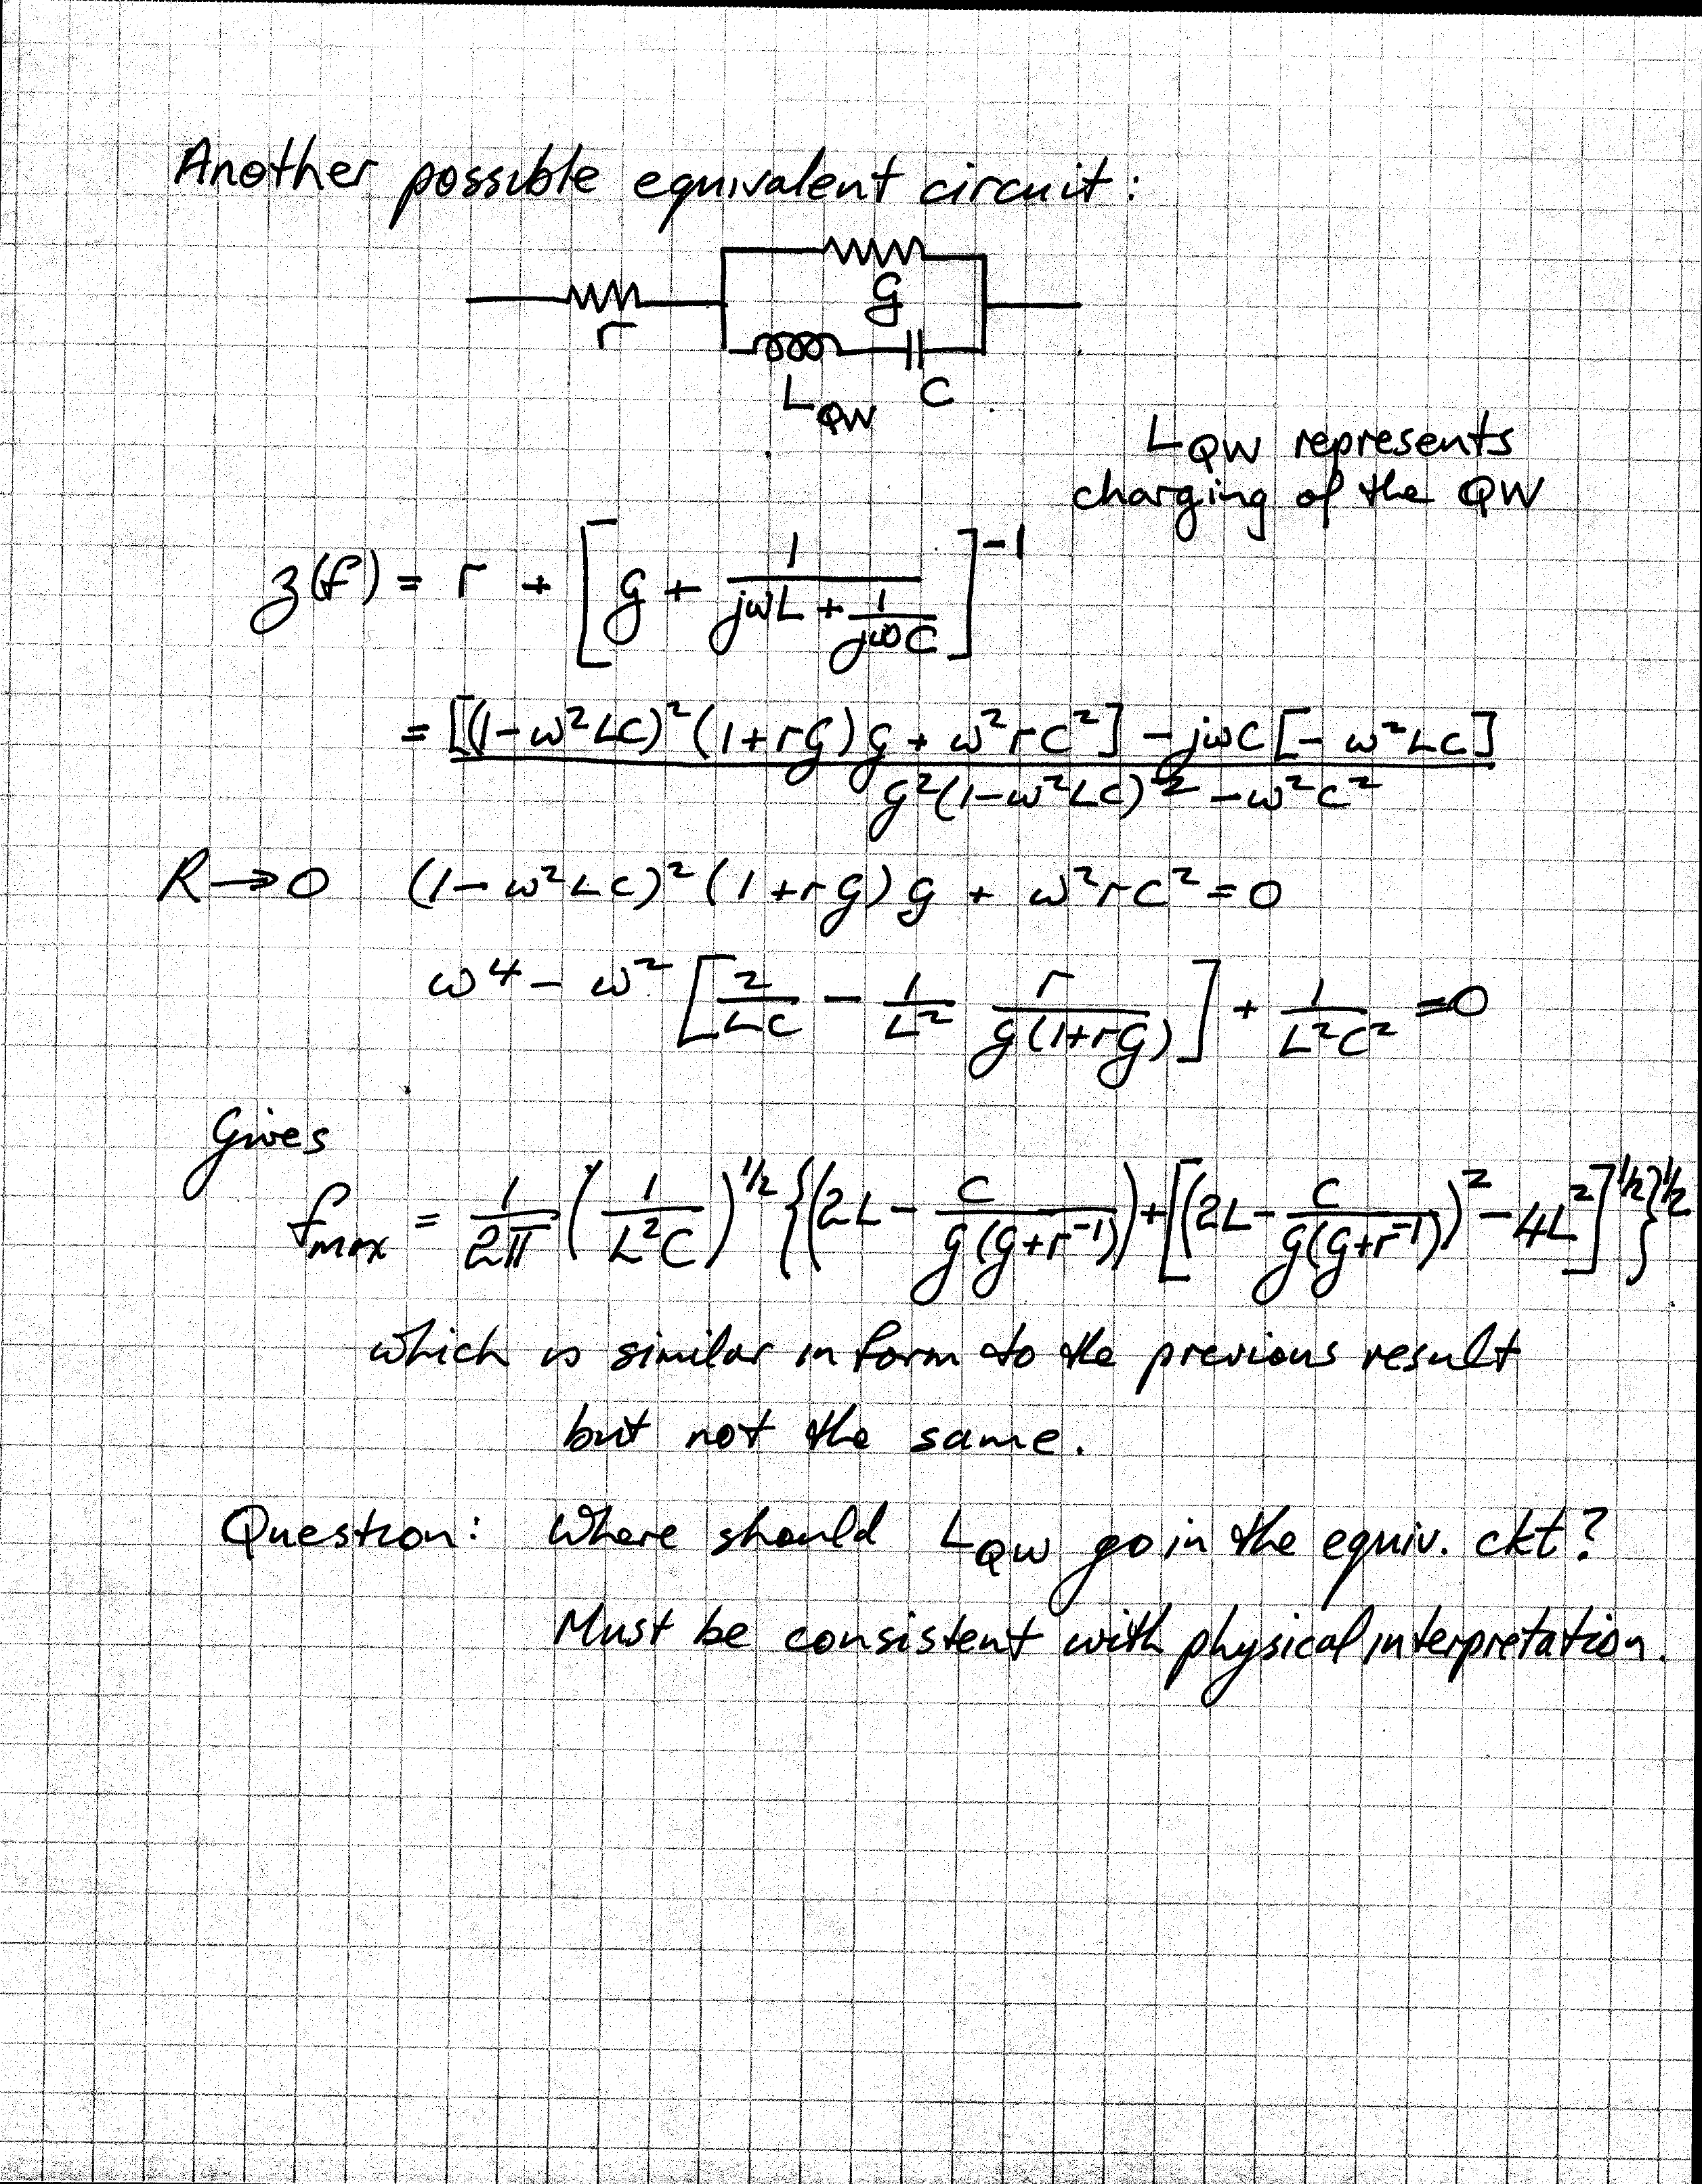 Another possible equivalent circuit:
r
g
L_QW C
L_QW represents
charging of the QW
z(f) = r + [g + 1/(jωL + 1/(jωC))]^-1
= {[(1-ω²LC)²(1+rg)g + ω²rC²] - jωC[- ω²LC]} / {g²(1-ω²LC)² - ω²C²}
R→0 (1-ω²LC)²(1+rg)g + ω²rC² = 0
ω⁴ - ω² [2/(LC) - 1/L² r/(g(1+rg))] + 1/(L²C²) = 0
Gives
f_max = 1/(2π) (1/(L²C))^1/2 {(2L - C/(g(g+r^-1))) + [(2L - C/(g(g+r^-1)))² - 4L²]^1/2}^1/2
which is similar in form to the previous result
but not the same.
Question: Where should L_QW go in the equiv. ckt?
Must be consistent with physical interpretation.